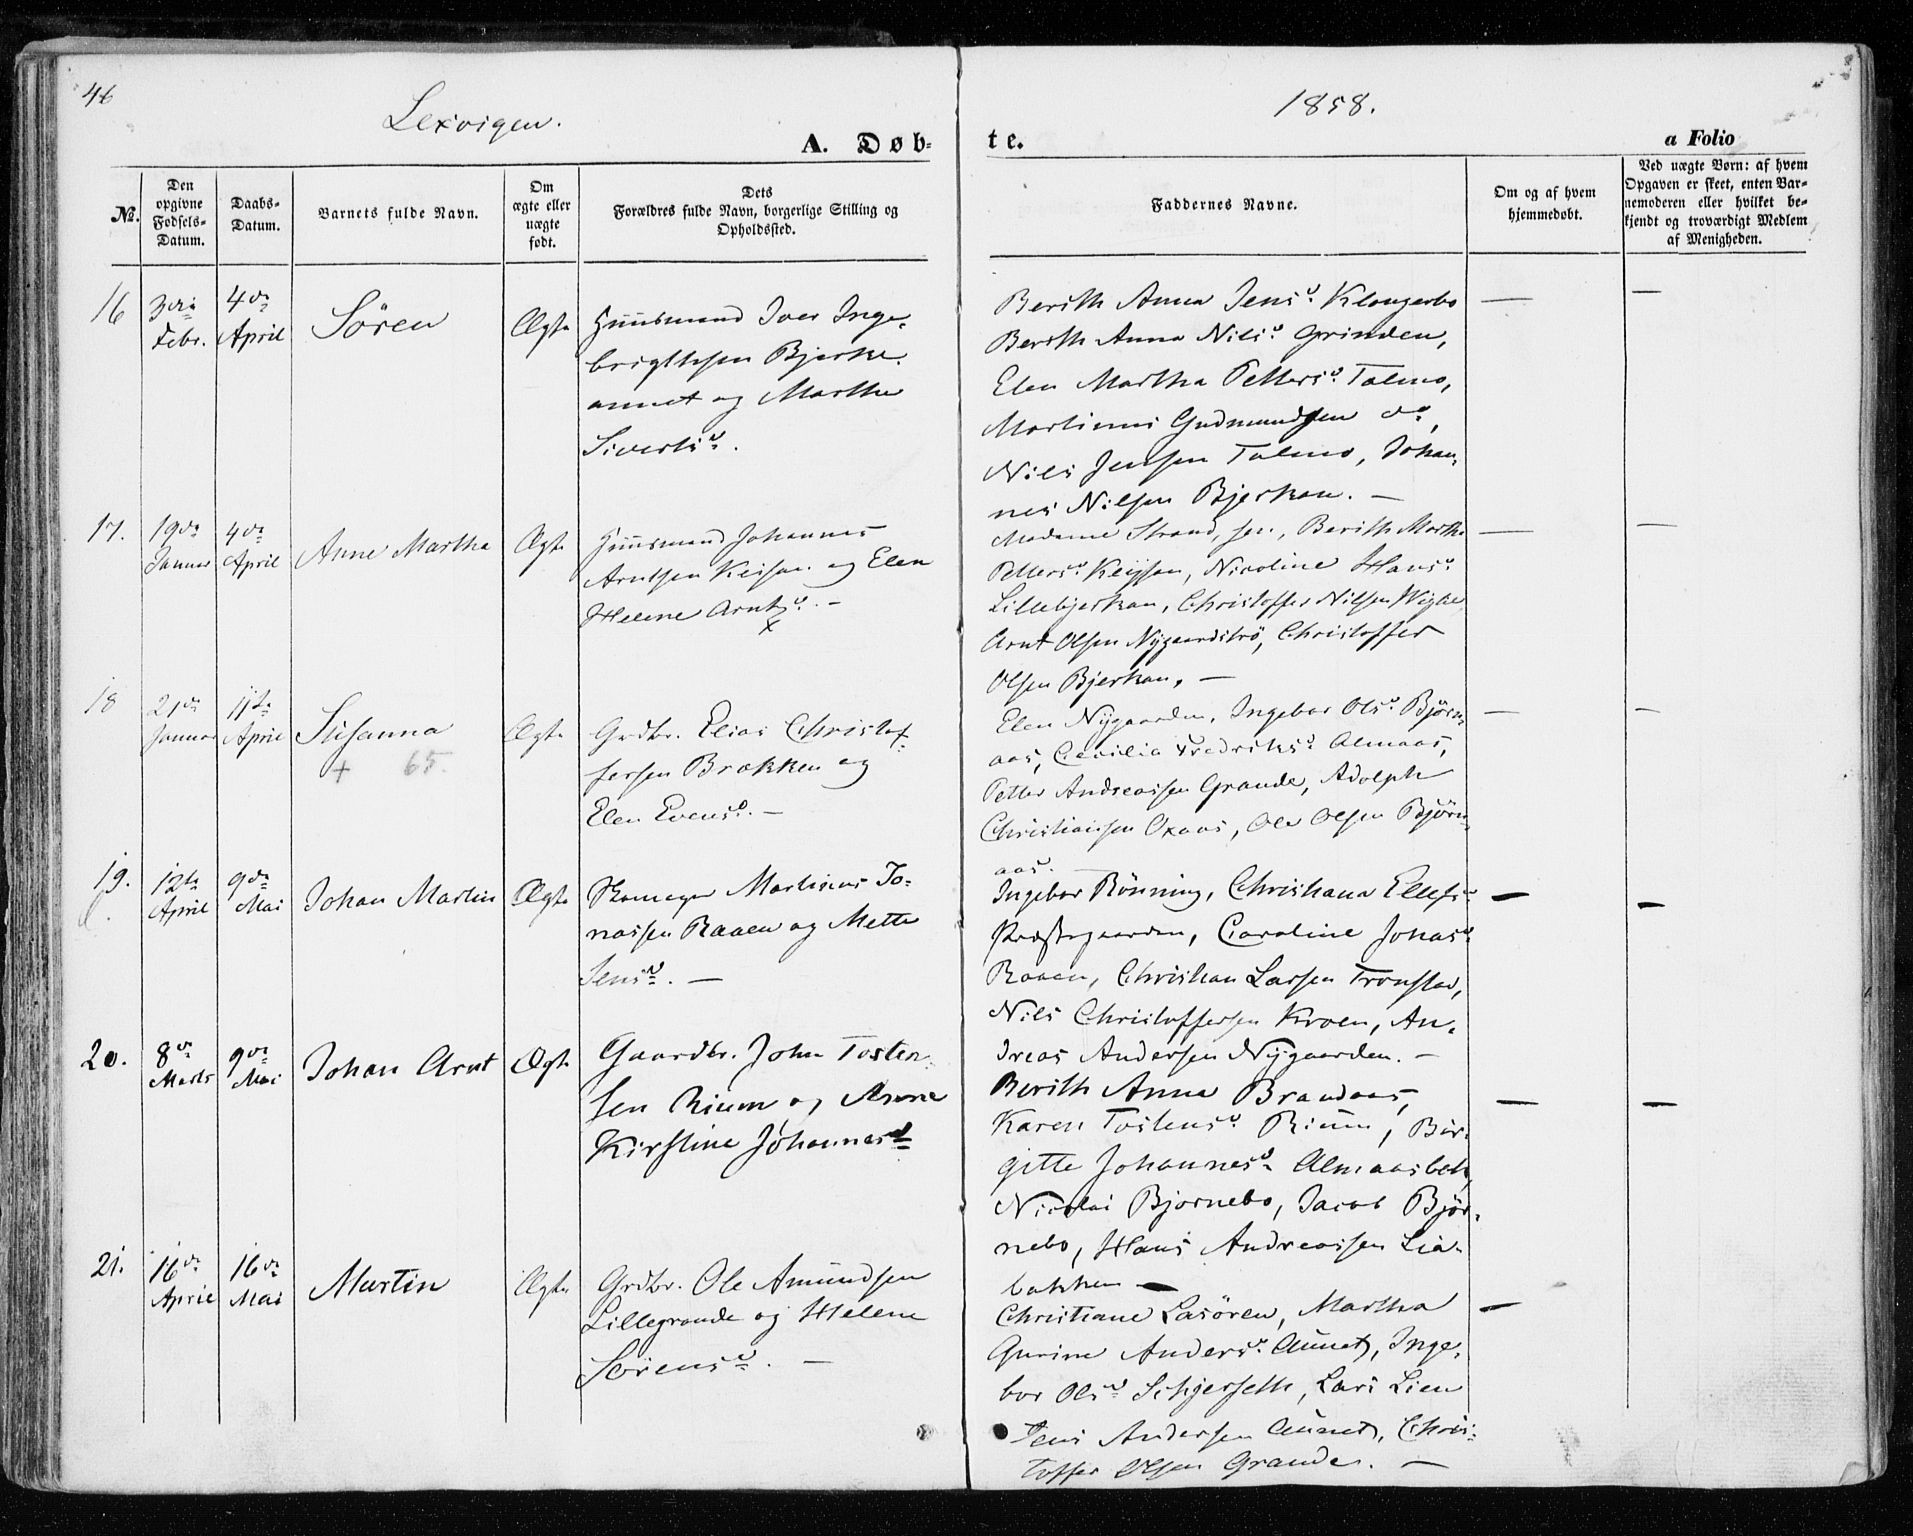 46
Lexvigen.
1858.
A. Døb-
te.
a Folio
№.
Den
opgivne
Fødsels-
Datum.
Daabs-
Datum.
Barnets fulde Navn.
Om
ægte eller
uægte
født.
Dets
Forældres fulde Navn, borgerlige Stilling og
Opholdssted.
Faddernes Navne.
Om og af hvem
hjemmedøbt.
Ved uægte Børn: af hvem
Opgaven er skeet, enten Bar-
nemoderen eller hvilket be-
kjendt og troværdigt Medlem
af Menigheden.
16
3die
Febr.
4de
April
Sören
Ægte
Huusmand Iver Inge-
brigthsen Bjerke-
aunet og Martha
Sivertsd.
Berith Anna Jensd. Klongerbo
Berith Anna Nilsd. Grinden,
Elen Martha Pettersd. Talmo,
Martinus Gudmundsen do,
Nils Jensen Talmo, Johan-
nes Nilsen Bjerkan. —
—
—
17.
19de
Januar
4de
April
Anne Martha
Ægte
Huusmand Johannes
Arntsen Keisan og Elen
Helene Arntsd. —
x
Madame Strand, sen., Berith Martha
Pettersd. Keijsan, Nicoline Hansd.
Lillebjerkan, Christoffer Nilsen
Arnt Olsen Nygaardströ, Christoffer
Olsen Bjerkan. —
—
—
18
21de
Januar
11te
April
Susanna
+ 65.
Ægte
Grdbr. Elias Christof-
fersen Brækken og
Elen Evensd. —
Elen Nygaarden, Ingebor Olsd. Björn-
aas, Cecilia Fredriksd. Almaas,
Petter Andreassen Grande, Adolph
Christiansen Oxaas, Ole Olsen Björn-
aas. —
—
—
19.
12te
April
9de
Mai
Johan Martin
Ægte
Skomager Martinus Jo-
nassen Raaen og Mette
Jensd. —
Ingebor Rönning, Christiana Ellefsd.
Præstegaarden, Caroline Jonasd.
Raaen, Christian Larsen Tronstad,
Nils Christoffersen Kroen, An-
dreas Andersen Nygaarden. —
—
—
20.
8de
Marts
9de
Mai
Johan Arnt
Ægte
Gaardbr. John Tosten-
sen Rium og Anne
Kirstine Johannesd.
Berith Anna Brandaas,
Karen Tostensd. Rium, Bir-
gitte Johannesd. Almaasbak,
Nicolai Bjørnebo, Jacob Bjør-
nebo, Hans Andreassen Lia-
bakken —
—
—
21.
16de
April
16de
Mai
Martin
Ægte
Grdbr. Ole Amundsen
Lillegrande og Helene
Sörensd. —
Christiane Lasören, Martha
Gurine Andersd. Aunet, Inge-
bor Olsd. Schjerseth, Lars Lien
Jens Andersen Aunet, Chris-
toffer Olsen Grande. —
—